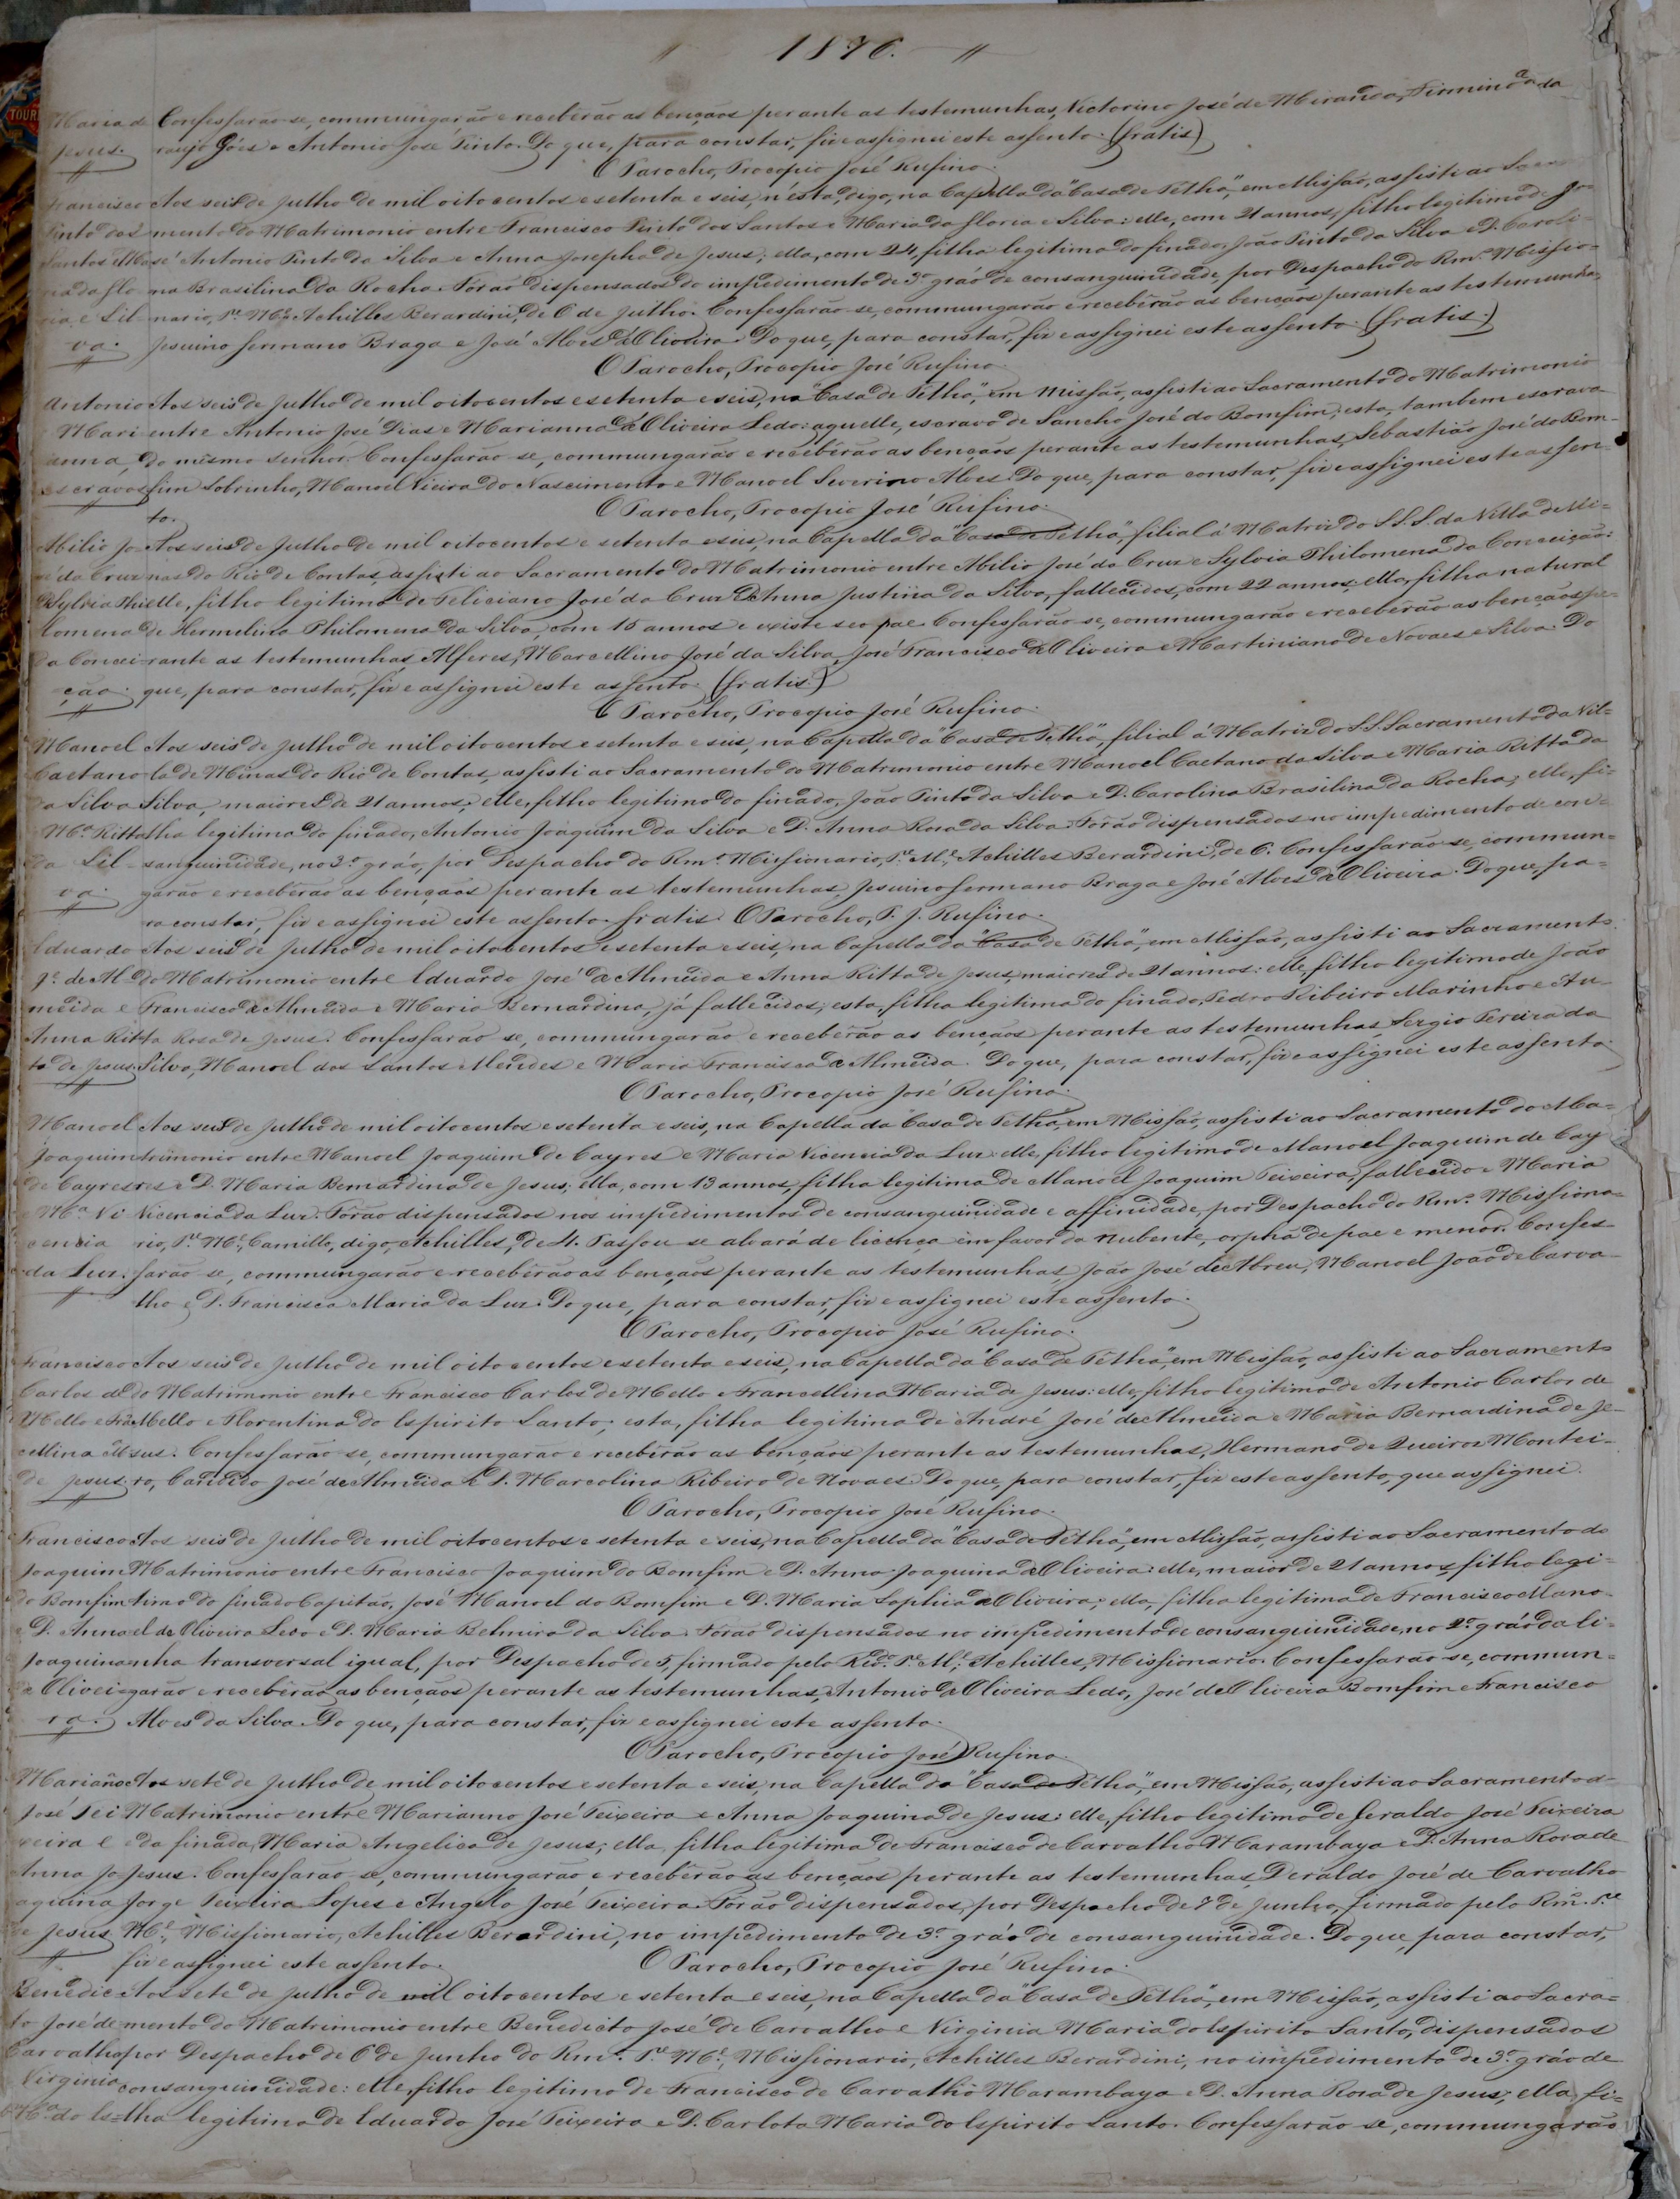 " 1876. "
Maria de Confessarão-se, commungarão e recebêrão as bençaõs perante as testemunhas, Victorino José de Miranda, Firmino da
Jesus. raujo Góes e Antonio José Pinto. Do que, para constar, fiz e assignei este assento. (Gratis)
O Parocho, Procopio José Rufino.
Francisco Aos seis de Julho de mil oitocentos e setenta e seis, n'esta, digo, na Capella da "Casa de Telha", em Missão, assisti ao Sacra
Pinto dos mento do Matrimonio entre Francisco Pinto dos Santos e Maria da Gloria e Silva: elle, com 21 annos, filho legitimo de Jo-
Santos e Ma sé Antonio Pinto da Silva e Anna Josepha de Jesus; ella, com 24, filha legitima do finado, João Pinto da Silva e D. Caroli-
ria da Glo na Brasilina da Rocha. Forão dispensados do impedimento de 3º gráo de consanguinidade, por Despacho do Rmº Missio-
ria e Sil- nario, Pe. Me. Achilles Berardini, de 6 de Julho. Confessarão-se, commungarão e recebêrão as bençaõs perante as testemunhas,
va. Jesuino Germano Braga e José Alves d'Oliveira. Do que, para constar, fiz e assignei este assento. (Gratis.)
O Parocho, Procopio José Rufino.
Antonio Aos seis de Julho de mil oitocentos e setenta e seis, na "Casa de Telha", em Missão, assisti ao Sacramento do Matrimonio
Mari entre Antonio José Dias e Marianna d'Oliveira Ledo: aquelle, escravo de Sancho José do Bomfim; esta, tambem escrava
anna, do mesmo senhor. Confessarão-se, commungarão e recebêrão as bençaõs perante as testemunhas, Sebastião José do Bom-
escravos fim Sobrinho, Manoel Vieira do Nascimento e Manoel Severino Alves. Do que, para constar, fiz e assignei este assen-
to. O Parocho, Procopio José Rufino.
Abilio Jo- Aos seis de Julho de mil oitocentos e setenta e seis, na Capella da "Casa de Telha", filial á Matriz do S.S.S. da Villa de Mi-
sé da Cruz nas do Rio de Contas, assisti ao Sacramento do Matrimonio entre Abilio José da Cruz e Sylvia Philomena da Conceição:
e Sylvia Phi elle, filho legitimo de Feliciano José da Cruz e Anna Justina da Silva, fallecidos, com 22 annos, ella, filha natural
lomena de Hermelina Philomena da Silva, com 15 annos e existe seo pae. Confessarão-se, commungarão e receberão as bençaõs pe-
da Concei rante as testemunhas, Alferes, Marcellino José da Silva, José Francisco d'Oliveira e Martiniano de Novaes e Silva. Do
ção. que, para constar, fiz e assignei este assento. (Gratis.)
O Parocho, Procopio José Rufino.
Manoel Aos seis de Julho de mil oitocentos e setenta e seis, na Capella da "Casa de Telha", filial á Matriz do S.S. Sacramento da Vil-
Caetano la de Minas do Rio de Contas, assisti ao Sacramento do Matrimonio entre Manoel Caetano da Silva e Maria Ritta da
da Silva Silva, maiores de 21 annos; elle, filho legitimo do finado, João Pinto da Silva e D. Carolina Brasilina da Rocha; ella, fi-
Mª Ritta lha legitima do finado, Antonio Joaquim da Silva e D. Anna Rosa da Silva. Forão dispensados no impedimento de con-
da Sil- sanguinidade, no 3º gráo, por Despacho do Rmº Missionario, Pe. Me. Achilles Berardini, de 6. Confessarão-se, commun-
va. garão e recebêrão as bençaõs perante as testemunhas, Jesuino Germano Braga e José Alves d'Oliveira. Do que, pa-
ra constar, fiz e assignei este assento. Gratis. O Parocho, P. J. Rufino.
Eduardo Aos seis de Julho de mil oitocentos e setenta e seis, na Capella da "Casa de Telha", em Missão, assisti ao Sacramento
Jé. de Al- do Matrimonio entre Eduardo José de Almeida e Anna Ritta de Jesus, maiores de 21 annos: elle, filho legitimo de João
meida e Francisco de Almeida e Maria Bernardina, já fallecidos; esta, filha legitima do finado, Pedro Ribeiro Marinho e An-
Anna Rit ta Rosa de Jesus. Confessarão-se, commungarão e recebêrão as bençaõs perante as testemunhas Sergio Pereira da
ta de Jesus. Silva, Manoel dos Santos Mendes e Maria Francisca de Almeida. Do que, para constar, fiz e assignei este assento.
O Parocho, Procopio José Rufino.
Manoel Aos seis de Julho de mil oitocentos e setenta e seis, na Capella da Casa de Telha, em Missão, assisti ao Sacramento do Ma-
Joaquim trimonio entre Manoel Joaquim de Cayres e Maria Vicencia da Luz: elle, filho legitimo de Manoel Joaquim de Cay
de Cayres res e D. Maria Bernardina de Jesus; ella, com 13 annos, filha legitima de Manoel Joaquim Teixeira, fallecido e Maria
e Mª Vi Vicencia da Luz. Forão dispensados nos impedimentos de consanguinidade e affinidade, por Despacho do Rmº Missiona-
cencia rio, Pe. Me., Camillo, digo, Achilles, de 4. Passou-se alvará de licença em favor da nubente, orphã de pae e menor. Confes
da Luz. sarão-se, commungarão e recebêrão as bençaõs perante as testemunhas, João José de Abreu, Manoel João de Carva-
lho e D. Francisca Maria da Luz. Do que, para constar, fiz e assignei este assento.
O Parocho, Procopio José Rufino.
Francisco Aos seis de Julho de mil oitocentos e setenta e seis, na Capella da "Casa de Telha", em Missão, assisti ao Sacramento
Carlos de do Matrimonio entre Francisco Carlos de Mello e Francellina Maria de Jesus: elle, filho legitimo de Antonio Carlos de
Mello e Fran Mello e Florentina do Espirito Santo; esta, filha legitima de André José de Almeida e Maria Bernardina de Je-
cellina M sus. Confessarão-se, commungarão e recebêrão as bençaõs perante as testemunhas, Hermano de Queiroz Montei-
de Jesus ro, Candido José de Almeida e D. Marcolina Ribeiro de Novaes. Do que, para constar, fiz este assento, que assignei.
O Parocho, Procopio José Rufino.
Francisco Aos seis de Julho de mil oitocentos e setenta e seis, na Capella da "Casa de Telha", em Missão, assisti ao Sacramento do
Joaquim Matrimonio entre Francisco Joaquim do Bomfim e D. Anna Joaquina d'Oliveira: elle, maior de 21 annos, filho legi-
do Bomfim timo do finado Capitão, José Manoel do Bomfim e D. Maria Sophia d'Oliveira; ella, filha legitima de Francisco Mano-
e D. Anna el de Oliveira Ledo e D. Maria Belmira da Silva. Forão dispensados no impedimento de consanguinidade, no 2º gráo da li-
Joaquina nha transversal igual, por Despacho de 5, firmado pelo Redº. Pe. Me. Achilles, Missionario. Confessarão-se, commun-
de Olivei- garão e recebêrão as bençaõs perante as testemunhas, Antonio d'Oliveira Ledo, José de Oliveira Bomfim e Francisco
ra. Alves da Silva. Do que, para constar, fiz e assignei este assento.
O Parocho, Procopio José Rufino.
Mariano Aos sete de Julho de mil oitocentos e setenta e seis, na Capella da "Casa de Telha", em Missão, assisti ao Sacramento d-
José Tei Matrimonio entre Marianno José Teixeira e Anna Joaquina de Jesus: elle, filho legitimo de Geraldo José Teixeira
xeira e e da finada, Maria Angelica de Jesus; ella, filha legitima de Francisco de Carvalho Marambaya e D. Anna Rosa de
Anna Jo- Jesus. Confessarão-se, commungarão e recebêrão as bençaõs perante as testemunhas, Deraldo José de Carvalho
aquina Jorge Teixeira Lopes e Angelo José Teixeira. Forão dispensados, por Despacho de 7 de Junho, firmado pelo Rmº. Pe.
de Jesus Me., Missionario, Achilles Berardini, no impedimento de 3º gráo de consanguinidade. Do que, para constar,
fiz e assignei este assento. O Parocho, Procopio José Rufino.
Benedic- Aos sete de Julho de mil oitocentos e setenta e seis, na Capella da "Casa de Telha", em Missão, assisti ao Sacra-
to José de mento do Matrimonio entre Benedicto José de Carvalho e Virginia Maria do Espirito Santo, dispensados
Carvalho por Despacho de 6 de Junho do Rmº. Pe. Me., Missionario, Achilles Berardini, no impedimento de 3º gráo de
Virginia consanguinidade: elle, filho legitimo de Francisco de Carvalho Marambaya e D. Anna Rosa de Jesus; ella, fi-
Mª do Es- lha legitima de Eduardo José Teixeira e D. Carlota Maria do Espirito Santo. Confessarão-se, commungarão